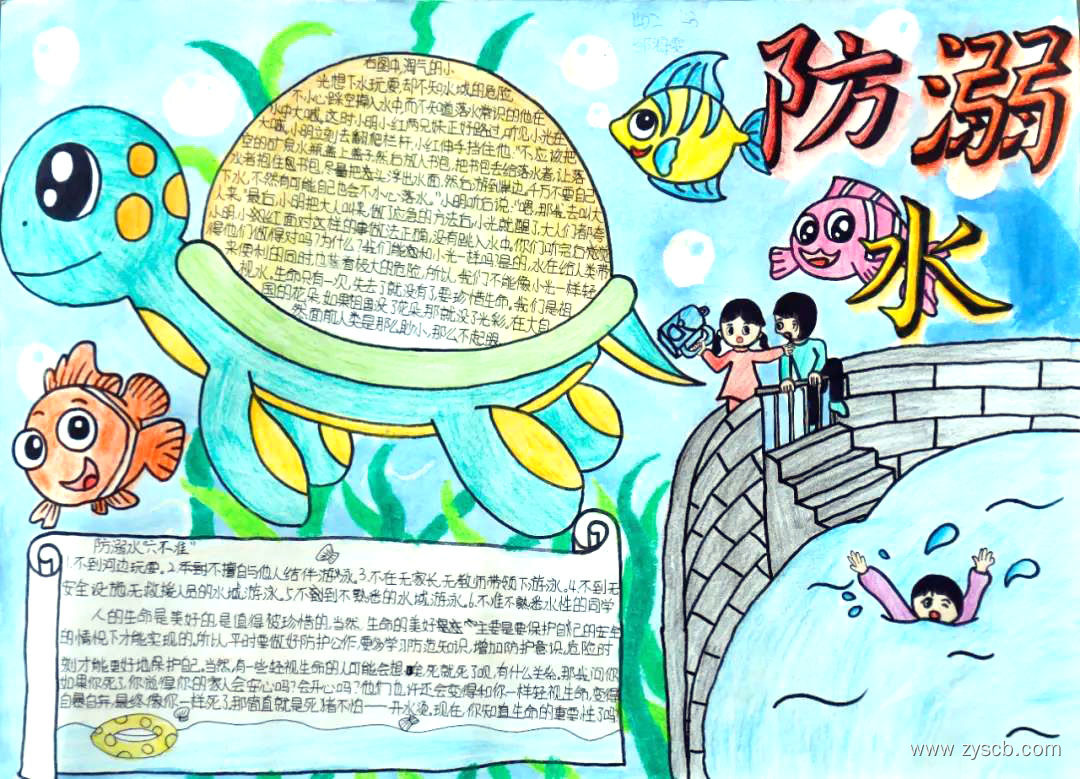 防溺
水
右图中,淘气的小
光想下水玩耍,却不知水域的危险,
不小心踩空掉入水中,而不知道落水常识的他在
水中大喊,这时小明小红两兄妹正好路过,听见小光在
大喊,小明立刻去翻爬栏杆,小红伸手挡住他:"不应该把
空的矿泉水瓶盖上盖子,然后放入书包,把书包丢给落水者,让落
水者抱住包书包,尽量把头浮出水面,然后游到岸边,千万不要自己
下水,不然有可能自己也会不小心落水。"小明听后说:"嗯,那我去叫大
人来。"最后,小明把大人叫来,做了应急的方法后小光就醒了,大人们都夸
小明,小红面对这样的事做法正确,没有跳入水中,你们听完后感觉
得他们做得对吗?为什么?我们能和小光一样吗?是的,水在给人类带
来便利的同时也装着极大的危险,所以,我们不能像小光一样轻
视水,生命只有一次,失去了就没有了,要珍惜生命。我们是祖
国的花朵,如果祖国没了花朵,那就没了光彩,在大自
然面前人类是那么助小,那么不起眼
防溺水"六不准"
1.不到河边玩耍。2.不擅自与他人结伴游泳。3.不在无家长、无教师带领下游泳。4.不到无
安全设施、无救援人员的水域游泳。5.不到不熟悉的水域游泳。6.不准不熟悉水性的同学
人的生命是美好的,是值得被珍惜的,当然,生命的美好主要是要保护自己的去生
的情况下才能实现的。所以,平时要做好防护公作,要学习防边知识,增加防护意识,危险时
刻才能更好地保护自己。当然,有一些轻视生命的人可能会想:死就死了呗,有什么关系。那我问你
如果你死了,你觉得你的家人会安心吗?会开心吗?他们也许还会变得和你一样轻视生命,变得
自暴自弃,最终像你一样死了,那简直就是死猪不怕——开水烫。现在,你知道生命的重要性了吗
www.zyscb.com